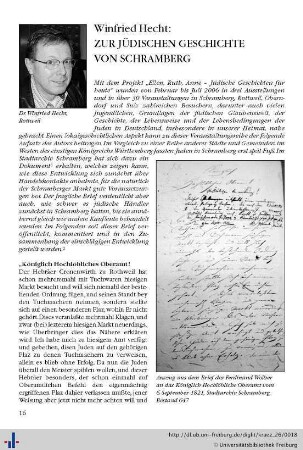 Winfried Hecht:
ZUR JÜDISCHEN GESCHICHTE
VON SCHRAMBERG
Mit dem Projekt „Ellen, Ruth, Anne – Jüdische Geschichten für
heute" wurden von Februar bis Juli 2006 in drei Ausstellungen
und in über 30 Veranstaltungen in Schramberg, Rottweil, Obern-
dorf und Sulz zahlreichen Besuchern, darunter auch vielen
Jugendlichen, Grundlagen der jüdischen Glaubenswelt, der
Geschichte, der Lebensweise und der Lebensbedingungen der
Juden in Deutschland, insbesondere in unserer Heimat, nahe
Dr. Winfried Hecht,
Rottweil
gebracht. Einen lokalgeschichtlichen Aspekt kann zu dieser Veranstaltungsreihe der folgende
Aufsatz des Autors beitragen. Im Vergleich zu einer Reihe anderer Städte und Gemeinden im
Westen des einstigen Königreichs Württemberg fassten Juden in Schramberg erst spät Fuß. Im
Stadtarchiv Schramberg hat sich dazu ein
Dokument erhalten, welches zeigen kann,
wie diese Entwicklung sich zunächst über
Handelskontakte anbahnte, für die natürlich
der Schramberger Markt gute Voraussetzun-
gen bot. Der fragliche Brief verdeutlicht aber
auch, wie schwer es jüdische Händler
zunächst in Schramberg hatten, bis sie annä-
hernd gleich wie andere Kaufleute behandelt
wurden. Im Folgenden soll dieser Brief ver-
öffentlicht, kommentiert und in den Zu-
sammenhang der einschlägigen Entwicklung
gestellt werden.
„Königlich Hochlöbliches Oberamt!
Der Hebräer Cronenwirth zu Rothweil hat
schon mehrenmahl mit Tuchwaren hiesigen
Markt besucht und will sich niemahl der beste-
henden Ordnung fügen, und seinen Stand bey
den Tuchmachern nehmen, sondern stellte
sich auf einen besonderen Plaz, wohin Er nicht
gehört. Dises veranlaßte mehrmahl Klagen, und
zwar (bei) lezterem hiesigen Markt neuerdings,
wie Überbringer dies das Nähere erklären
wird. Ich habe mich zu hiesigem Amt verfügt
und gebetten, disen Juden auf den gehörigen
Plaz zu denen Tuchmachern zu verweisen,
allein es blieb ohne Erfolg. Da nun die Juden
überall den Meister spielen wollen, und dieser
Hebräer besonders, der schon einmahl auf
Oberamtlichen Befehl den eigenmächtig
ergriffenen Plaz daher verlassen mußte, jener
Weisung aber jetzt nicht mehr achten will und
Auszug aus dem Brief des Ferdinand Wolter
an das Königlich Hochlöbliche Oberamt vom
6. September 1821, Stadtarchiv Schramberg
Bestand 647
16
http://dl.ub.uni-freiburg.de/diglit/kraez_26/0018
© Universitätsbibliothek Freiburg